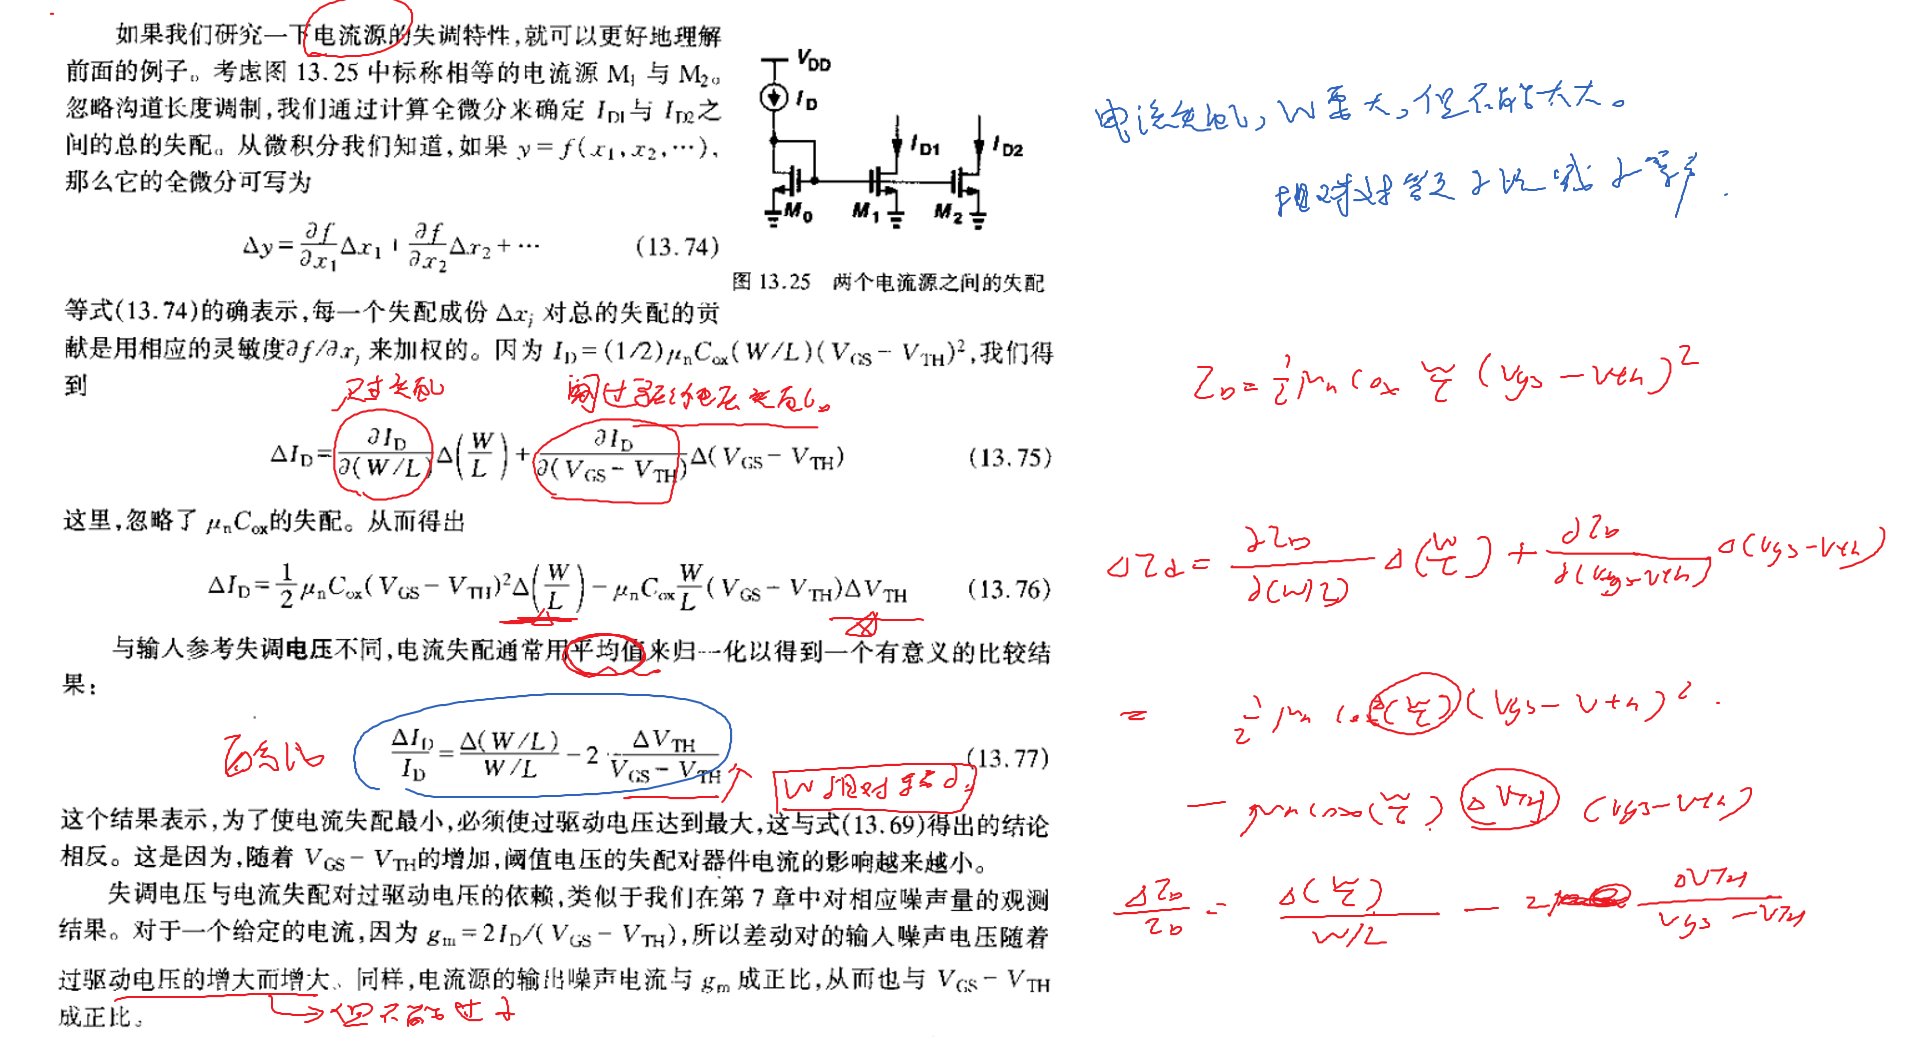 如果我们研究一下电流源的失调特性,就可以更好地理解
前面的例子。考虑图 13.25 中标称相等的电流源 M₁ 与 M₂。
忽略沟道长度调制,我们通过计算全微分来确定 I_D1 与 I_D2 之
间的总的失配。从微积分我们知道,如果 y = f(x₁, x₂, ⋯),
那么它的全微分可写为
Δy = ∂f/∂x₁ Δx₁ + ∂f/∂x₂ Δx₂ + ⋯ (13.74)
V_DD
I_D
I_D1
I_D2
M₀ M₁ M₂
图 13.25 两个电流源之间的失配
等式(13.74)的确表示,每一个失配成份 Δx_j 对总的失配的贡
献是用相应的灵敏度∂f/∂x_j 来加权的。因为 I_D = (1/2)μ_nC_ox(W/L)(V_GS − V_TH)²,我们得
到
尺寸失配
ΔI_D = ∂I_D/∂(W/L) Δ(W/L) + ∂I_D/∂(V_GS − V_TH) Δ(V_GS − V_TH) (13.75)
这里,忽略了 μ_nC_ox的失配。从而得出
ΔI_D = 1/2 μ_nC_ox(V_GS − V_TH)²Δ(W/L) − μ_nC_ox W/L (V_GS − V_TH)ΔV_TH (13.76)
与输人参考失调电压不同,电流失配通常用平均值来归一化以得到一个有意义的比较结
果:
ΔI_D/I_D = Δ(W/L)/(W/L) − 2 · ΔV_TH/(V_GS − V_TH) (13.77)
这个结果表示,为了使电流失配最小,必须使过驱动电压达到最大,这与式(13.69)得出的结论
相反。这是因为,随着 V_GS − V_TH的增加,阈值电压的失配对器件电流的影响越来越小。
失调电压与电流失配对过驱动电压的依赖,类似于我们在第 7 章中对相应噪声量的观测
结果。对于一个给定的电流,因为 g_m = 2I_D/(V_GS − V_TH),所以差动对的输人噪声电压随着
过驱动电压的增大而增大、同样,电流源的输出噪声电流与 g_m 成正比,从而也与 V_GS − V_TH
成正比。
但不能过大
电流失配,W要大,但不能太大。
I_D = 1/2 μn Cox W/L (Vgs − Vth)²
ΔId = ∂I_D/∂(W/L) Δ(W/L) + ∂I_D/∂(Vgs−Vth) Δ(Vgs−Vth)
= 1/2 μn Cox Δ(W/L) (Vgs − Vth)².
− μn Cox (W/L) ΔVTH (Vgs−Vth)
ΔI_D/I_D = Δ(W/L)/(W/L) − 2 ΔVTH/(Vgs − VTH)